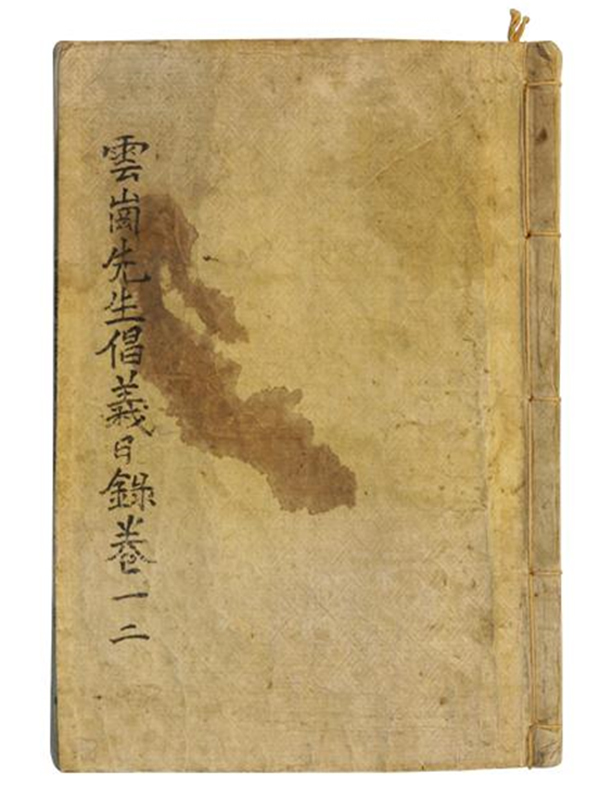 雲崗先生倡義日錄卷一二